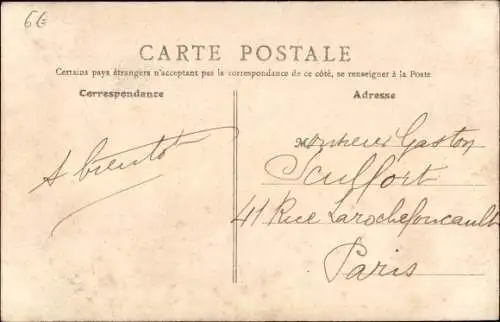 66
CARTE POSTALE
Certains pays étrangers n'acceptant pas la correspondance de ce côté, se renseigner à la Poste
Correspondance
A bientôt
Adresse
Monsieur Gaston
41 Rue Larochefoucault
Paris